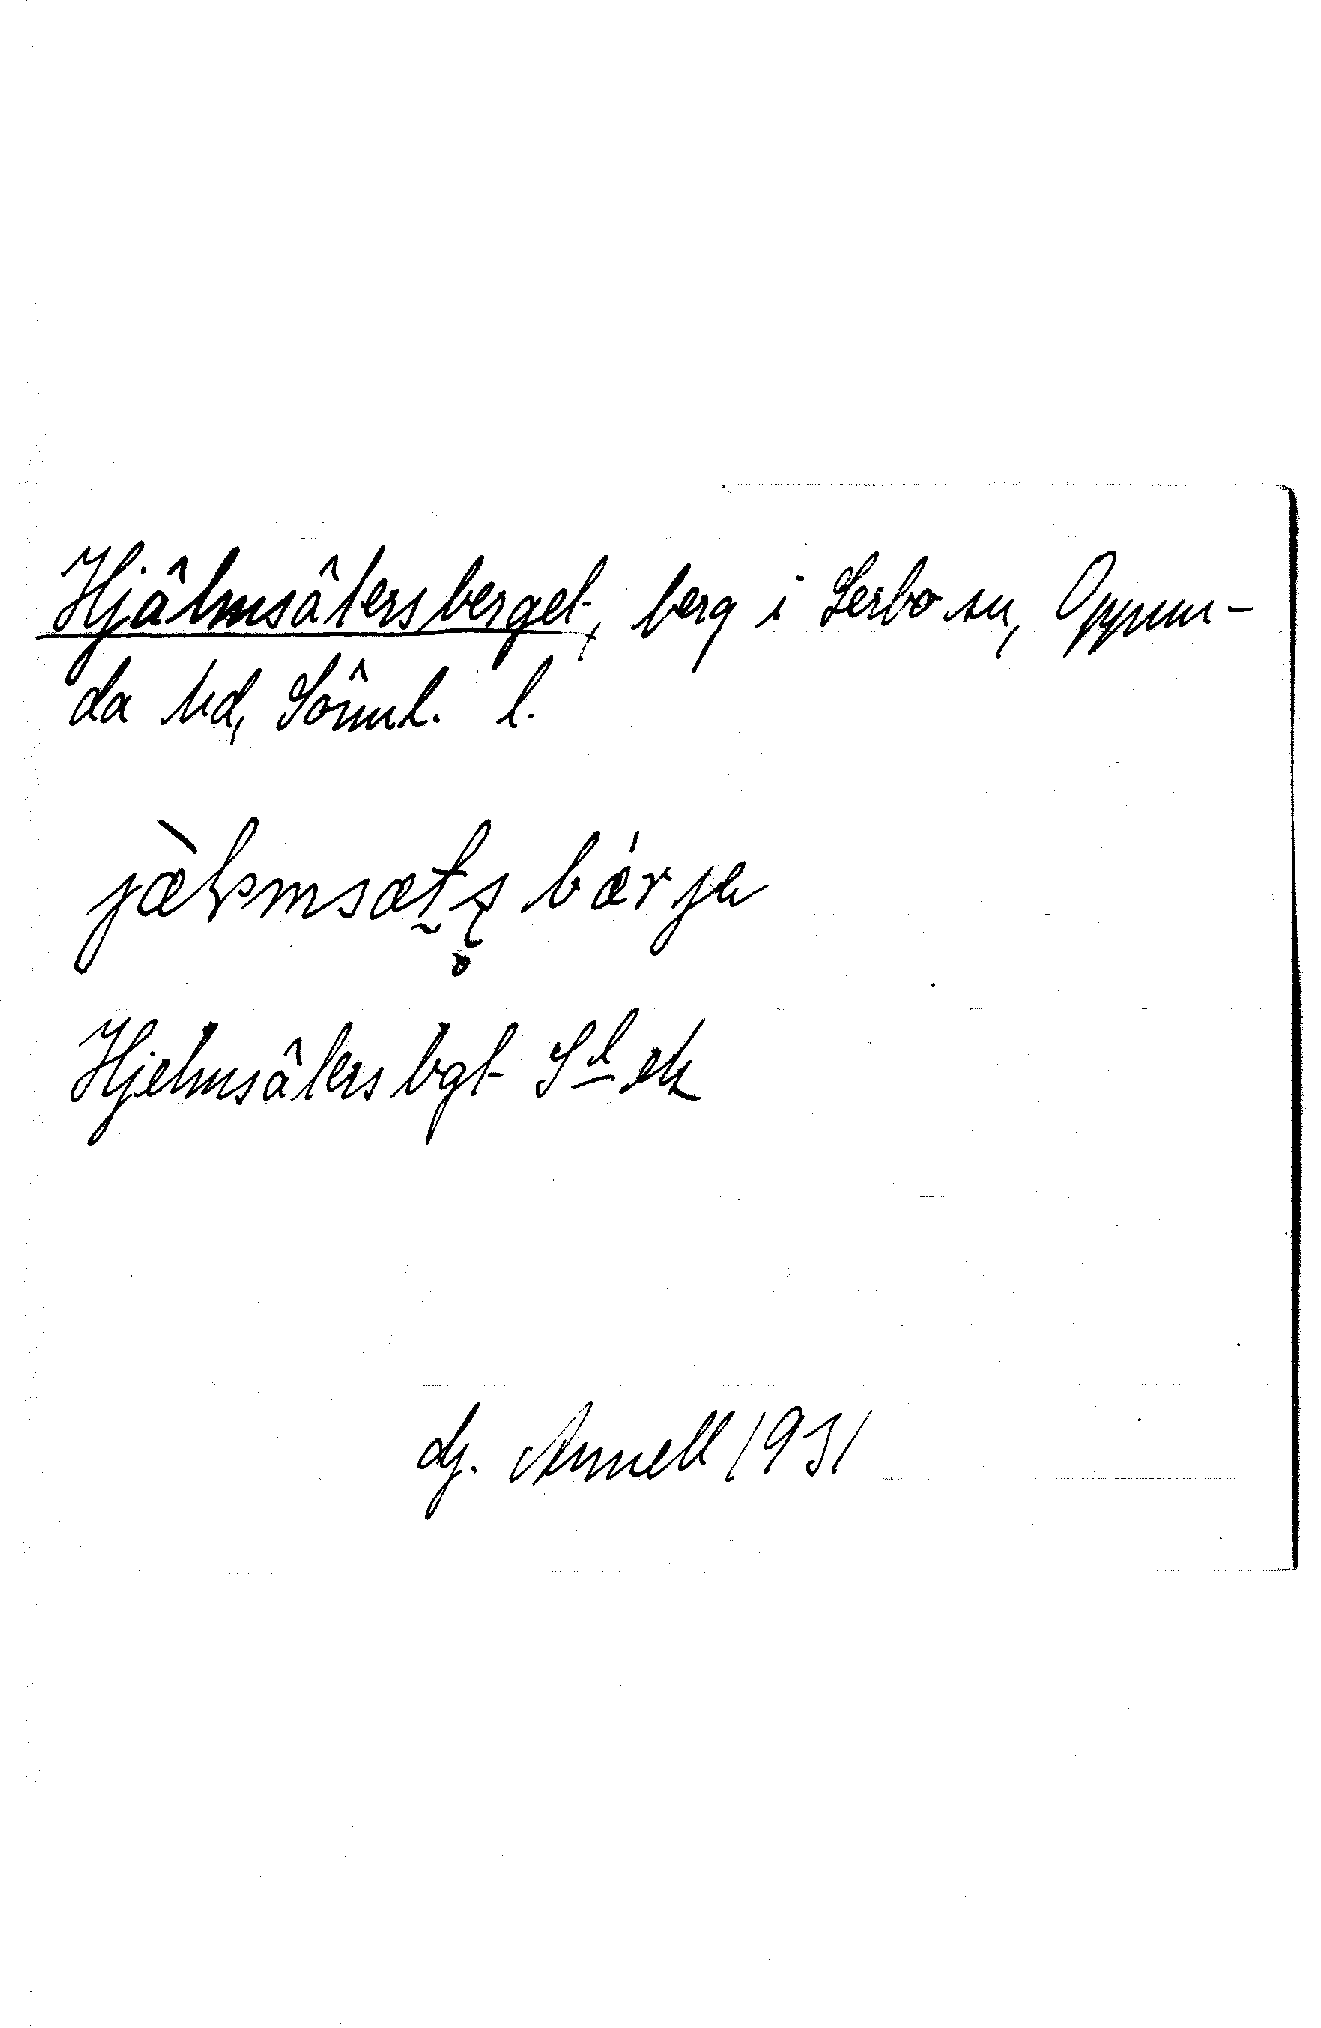 Hjälmsätersberget, berg i Lerbo sn, Oppun-
da hd, Söml. l.
jæ̀lmsæt̬s̥ bǽrja
Hjelmsätersbgt Gl ek
dj. Annell 1931